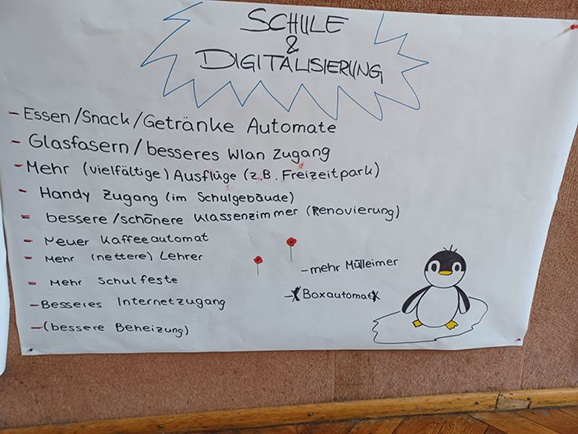 SCHULE
&
DIGITALISIERUNG
- Essen/Snack/Getränke Automate
- Glasfasern/besseres Wlan Zugang
- Mehr (vielfältige) Ausflüge (z.B. Freizeitpark)
- Handy Zugang (im Schulgebäude)
- bessere/schönere Klassenzimmer (Renovierung)
- Neuer Kaffeeautomat
- Mehr (nettere) Lehrer
- Mehr Schulfeste
- Besseres Internetzugang
- (bessere Beheizung)
- mehr Mülleimer
- Boxautomat